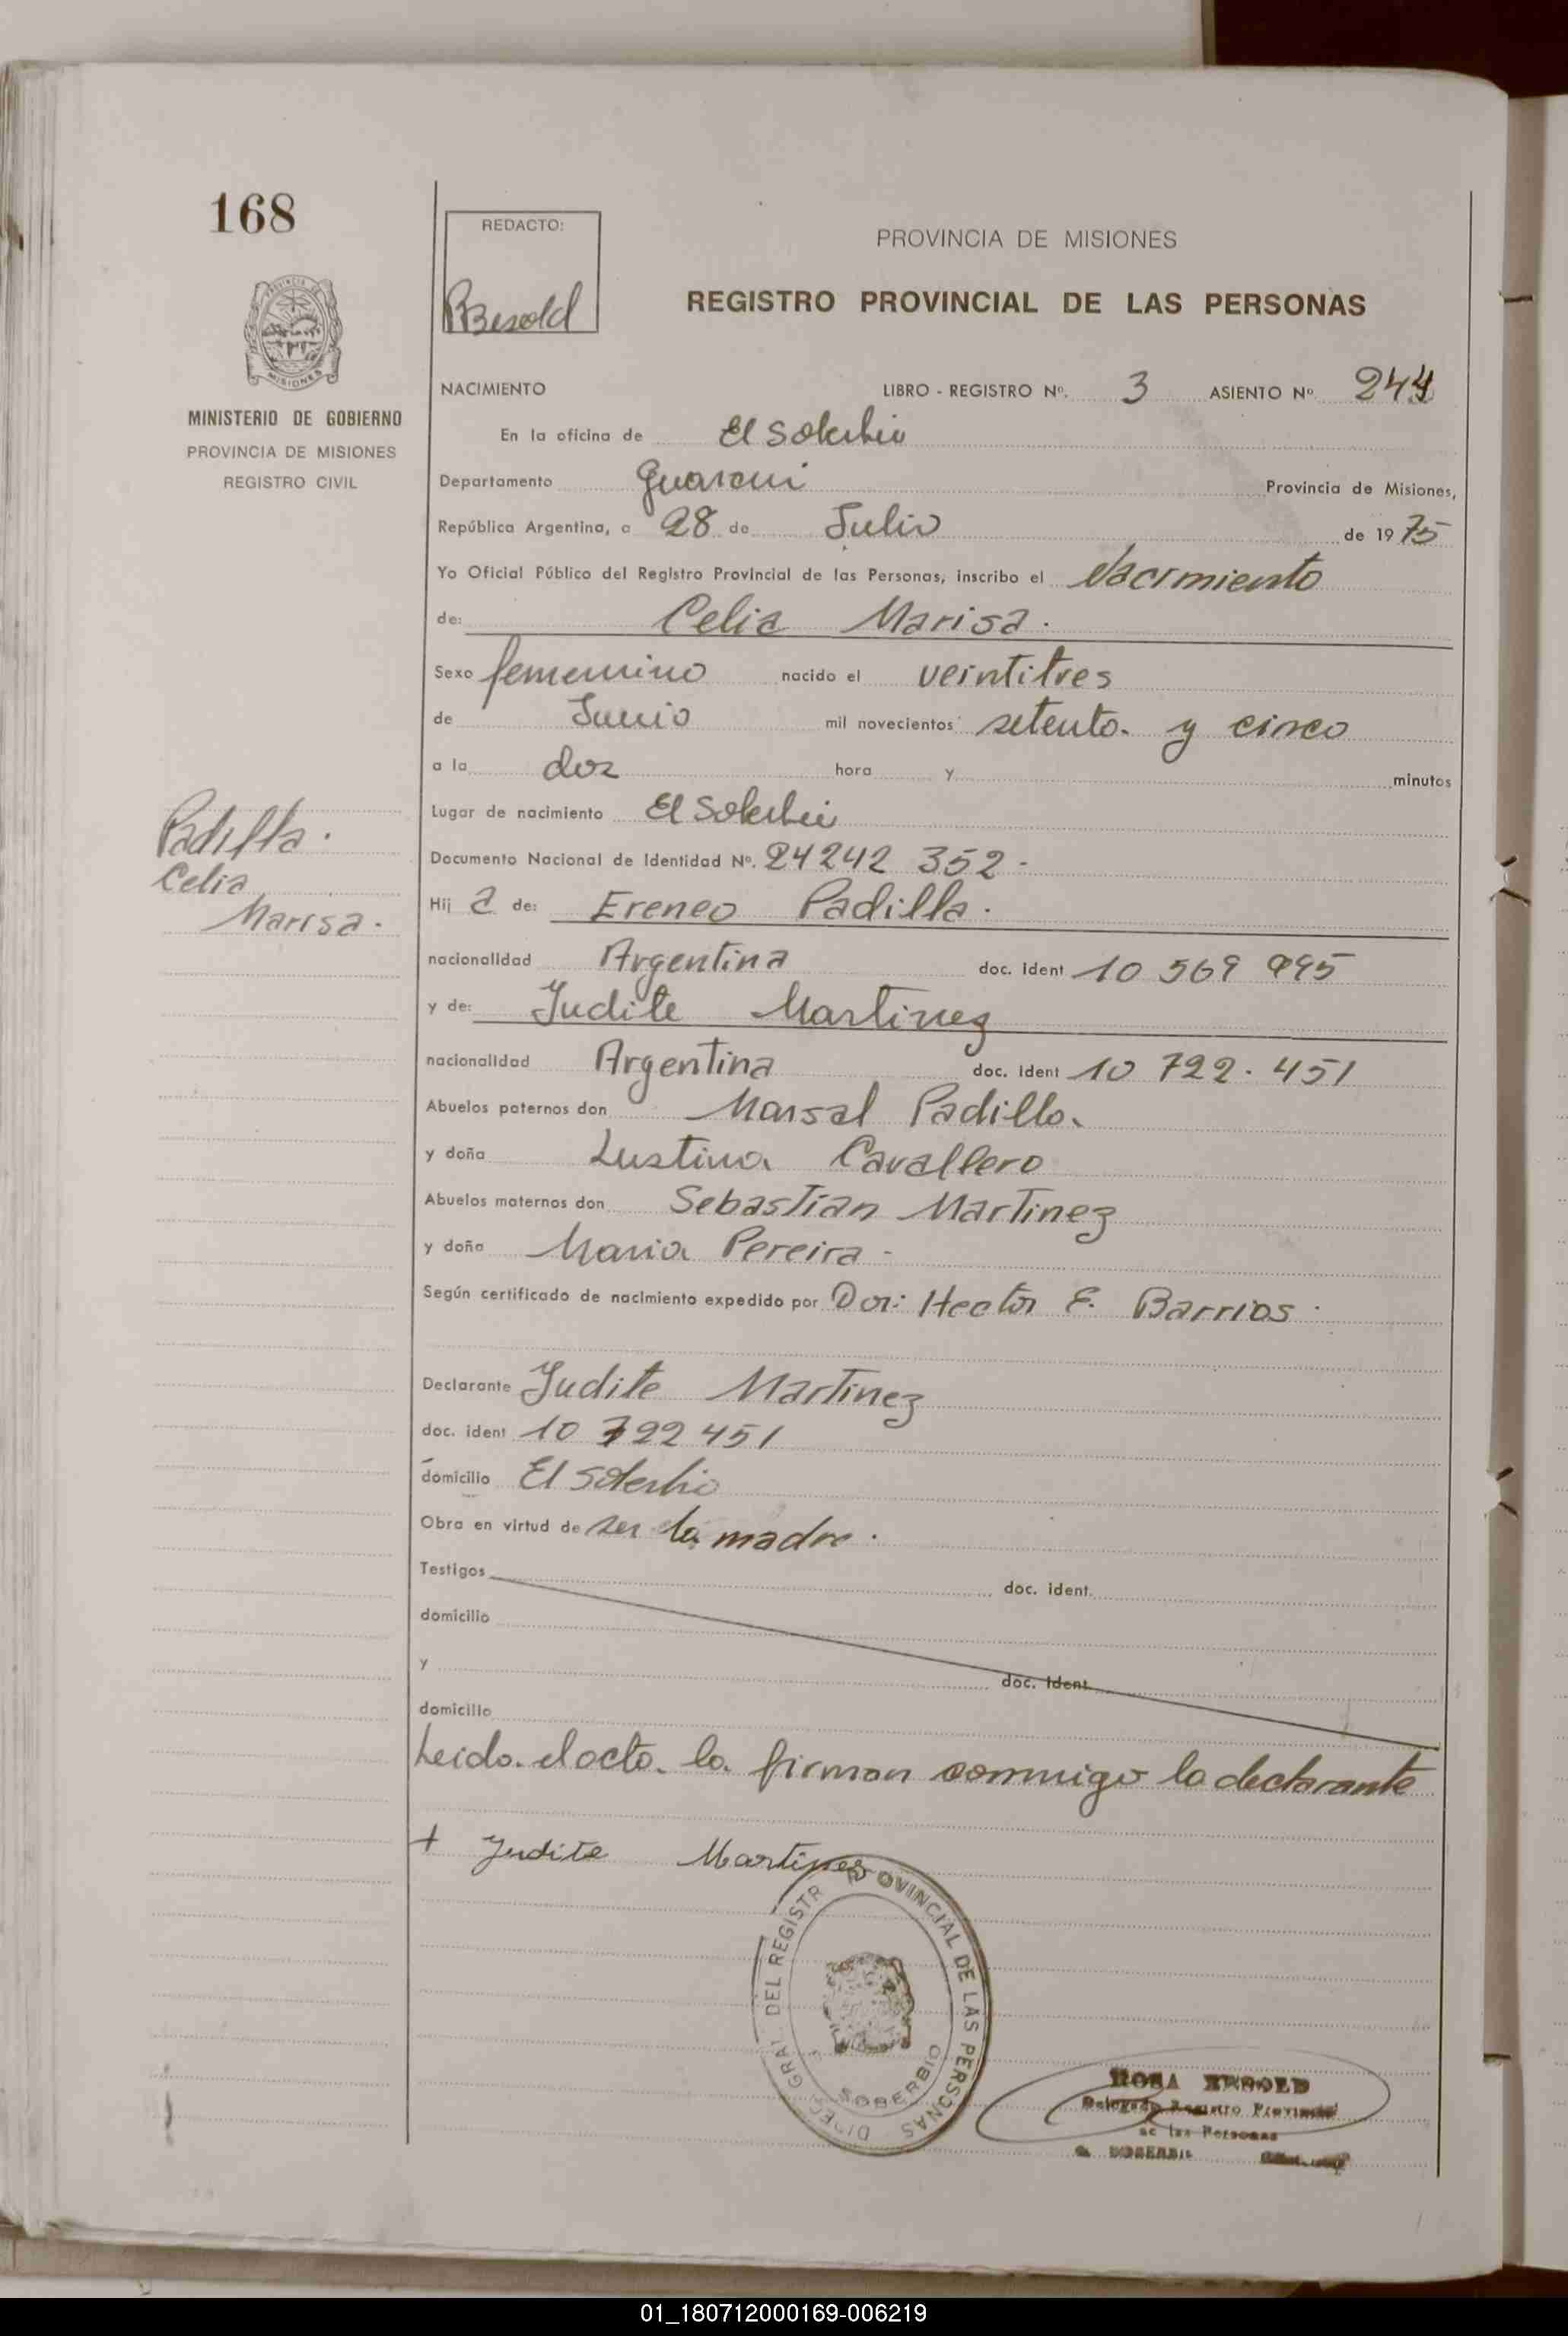 168
REDACTO:
RBesold
PROVINCIA DE MISIONES
REGISTRO PROVINCIAL DE LAS PERSONAS
PROVINCIA DE
MISIONES
MINISTERIO DE GOBIERNO
PROVINCIA DE MISIONES
REGISTRO CIVIL
NACIMIENTO LIBRO - REGISTRO Nº. 3 ASIENTO Nº 244
En la oficina de El Soberbio
Departamento Guarani Provincia de Misiones,
República Argentina, a 28 de Julio de 1975
Yo Oficial Público del Registro Provincial de las Personas, inscribo el Nacimiento
de: Celia Marisa.
Sexo femenino nacido el veintitres
de Junio mil novecientos setenta y cinco
a la dos hora y minutos
Lugar de nacimiento El Soberbio
Padilla.
Celia
Marisa.
Documento Nacional de Identidad Nº. 24242 352.
Hij a de: Ereneo Padilla.
nacionalidad Argentina doc. ident 10 569 995
y de: Judite Martinez
nacionalidad Argentina doc. ident 10 722.451
Abuelos paternos don Marsal Padilla.
y doña Lustina Cavallero
Abuelos maternos don Sebastian Martinez
y doña Maria Pereira -
Según certificado de nacimiento expedido por Dor: Hector E. Barrios.
Declarante Judite Martinez
doc. ident 10 722 451
domicilio El Soberbio
Obra en virtud de ser la madre.
Testigos doc. ident.
domicilio
y doc. ident
domicilio
Leida el acta la firman conmigo la declarante
+ Judite Martines
DIREC. GRAL. DEL REGISTR PROVINCIAL DE LAS PERSONAS
SOBERBIO
ROSA BESOLD
Delegado Registro Provincial
de las Personas